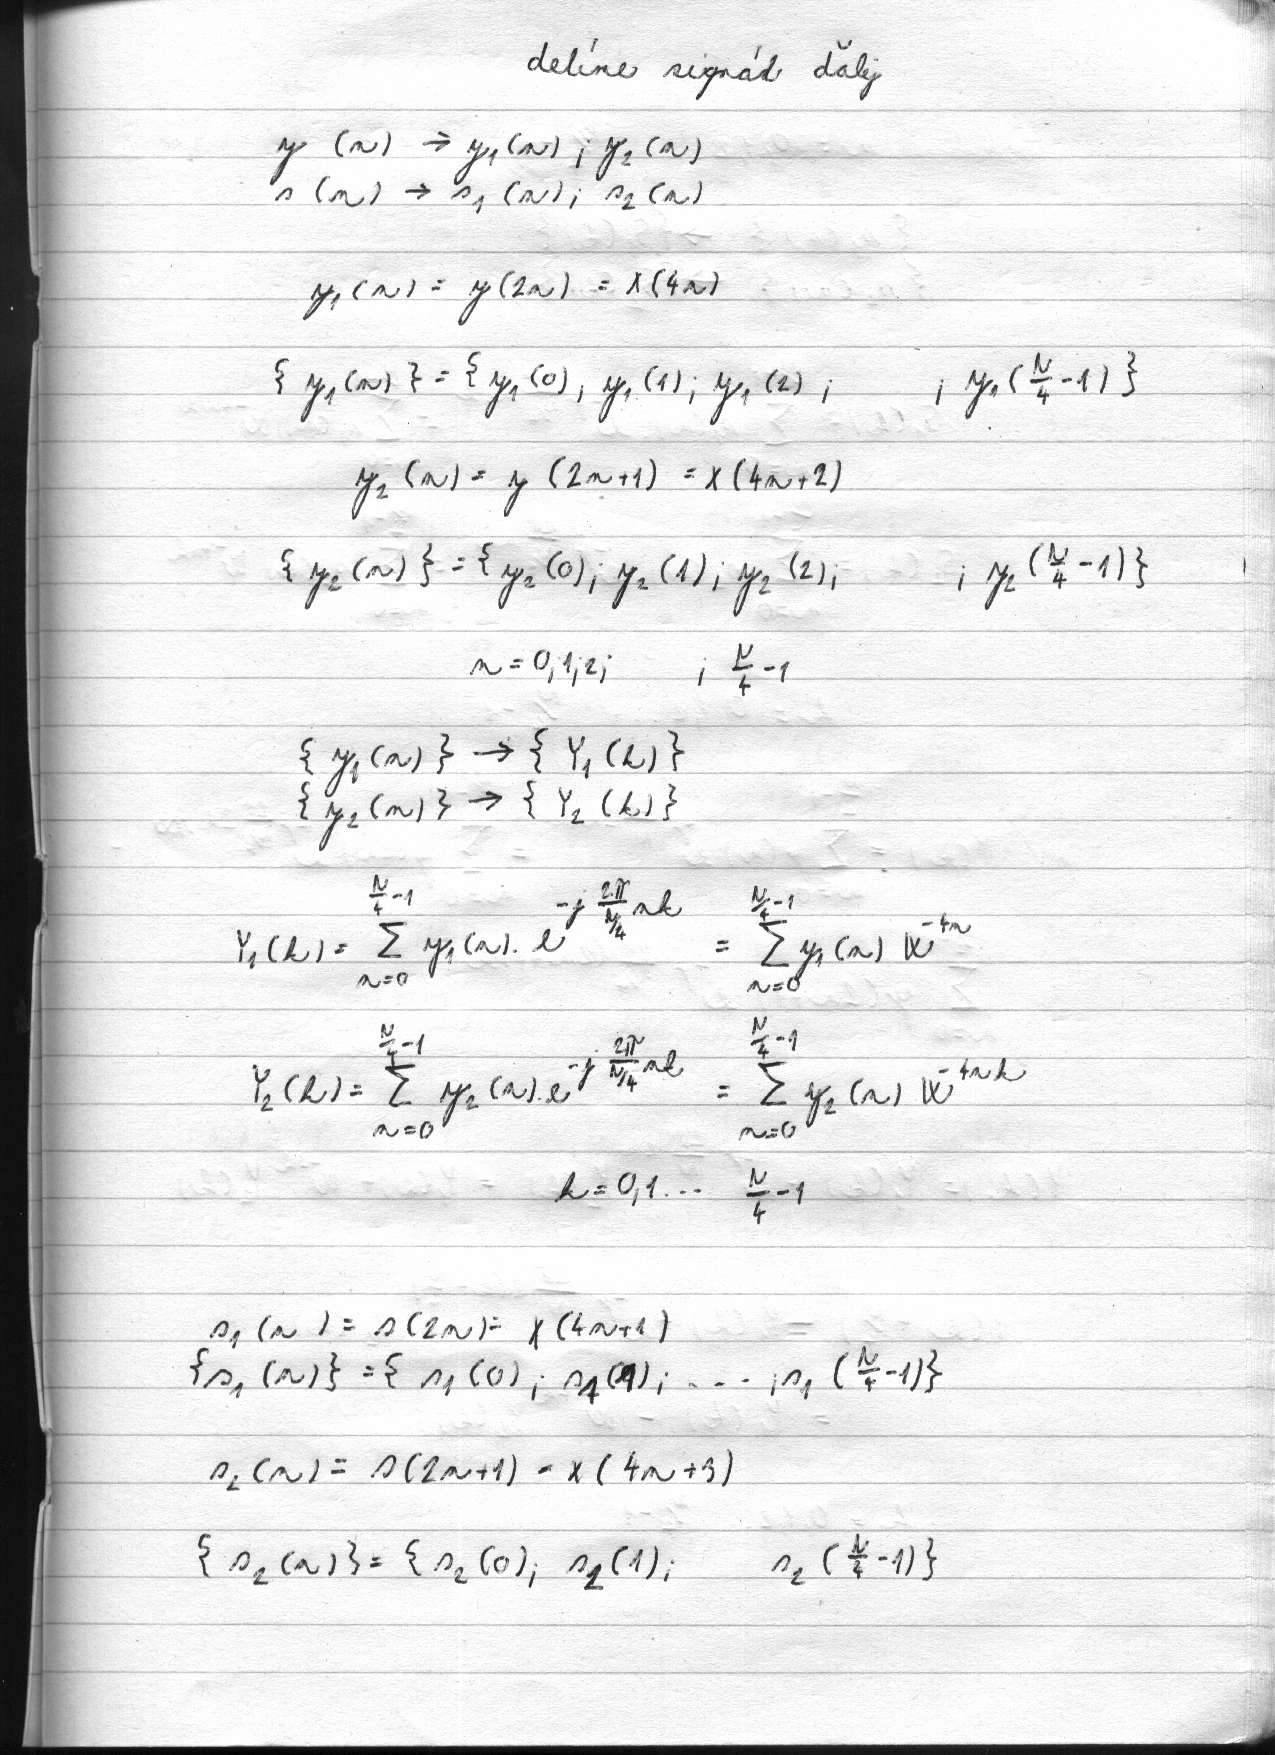 delíme signál ďalej
y (n) → y₁(n) ; y₂(n)
s (n) → s₁(n); s₂(n)
y₁(n) = y(2n) = x(4n)
{ y₁(n) } = { y₁(0); y₁(1); y₁(2) ; ; y₁(N/4 -1) }
y₂(n) = y (2n+1) = x(4n+2)
{ y₂(n) } = { y₂(0); y₂(1); y₂(2); ; y₂(N/4 -1) }
n = 0;1;2; ; N/4 -1
{ y₁(n) } → { Y₁(k) }
{ y₂(n) } → { Y₂(k) }
Y₁(k) = ∑_{n=0}^{N/4 -1} y₁(n) . e^{-j 2π/(N/4) nk} = ∑_{n=0}^{N/4 -1} y₁(n) W^{-4n}
Y₂(k) = ∑_{n=0}^{N/4 -1} y₂(n) . e^{-j 2π/(N/4) nk} = ∑_{n=0}^{N/4 -1} y₂(n) W^{-4nk}
k = 0,1... N/4 -1
s₁(n) = s(2n) = x(4n+1)
{s₁(n)} = { s₁(0); s₁(1); .... ; s₁(N/4 -1)}
s₂(n) = s(2n+1) = x(4n+3)
{ s₂(n) } = { s₂(0); s₂(1); s₂(N/4 -1)}